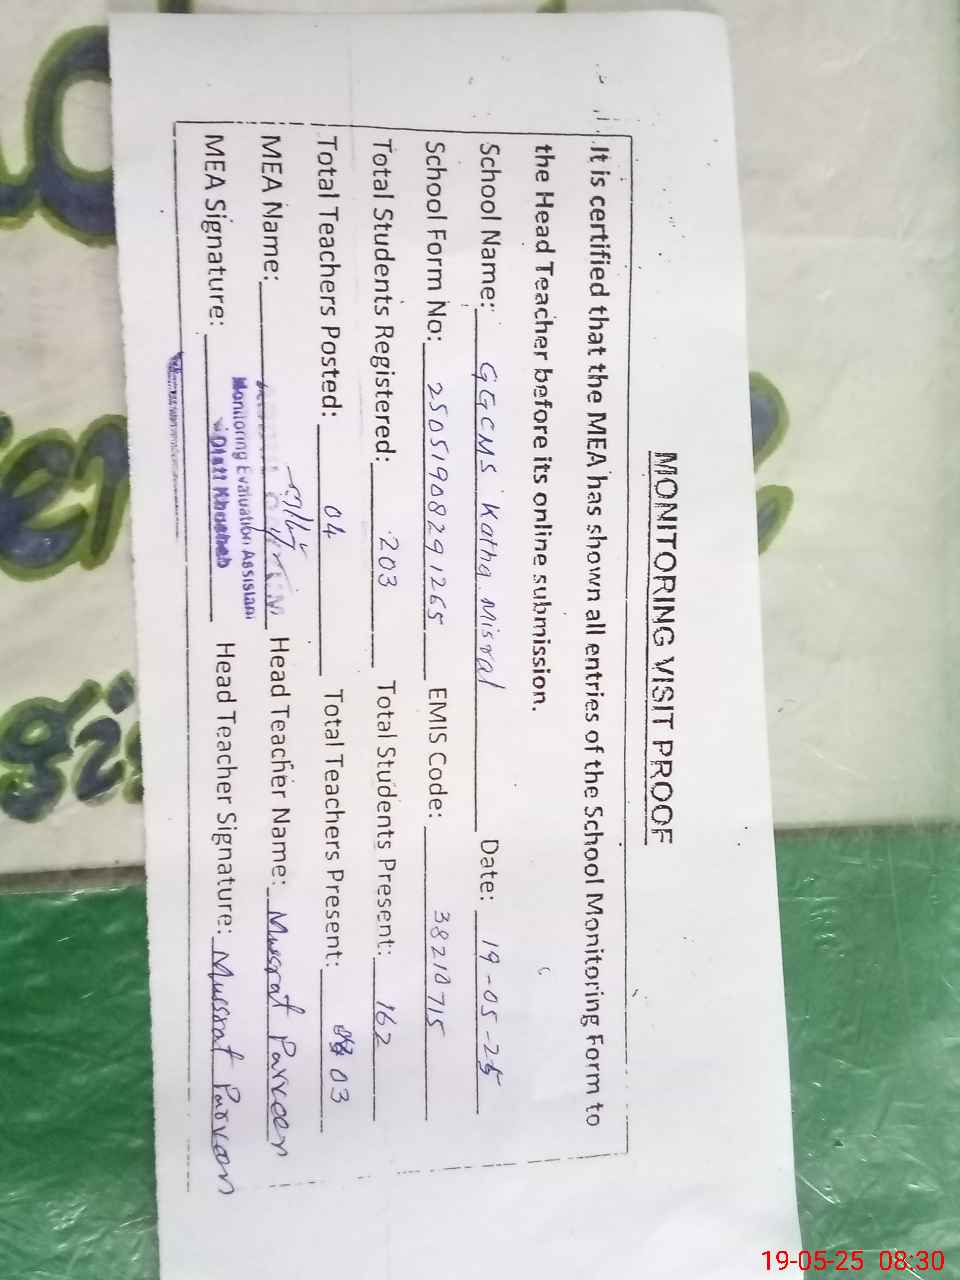 MONITORING VISIT PROOF
It is certified that the MEA has shown all entries of the School Monitoring Form to
the Head Teacher before its online submission.
School Name: GGCMS Katha Misral Date: 19-05-25
School Form No: 25051908291265 EMIS Code: 38210715
Total Students Registered: 203 Total Students Present: 162
Total Teachers Posted: 04 Total Teachers Present: 03
MEA Name: Head Teacher Name: Mussrat Parveen
Monitoring Evaluation Assistant
MEA Signature: Distt Khushab Head Teacher Signature: Mussrat Parveen
19-05-25 08:30